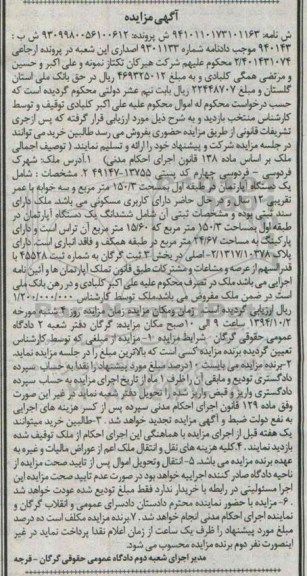 آگهی مزایده
ش نامه: ۹۴۱۰۱۱۰۱۷۳۱۰۱۱۶۳ ش پرونده: ۹۳۰۹۹۸۰۰۵۶۱۰۰۶۱۲ ش ب :
۹۴۰۱۴۳ موجب دادنامه شماره ۹۳۰۱۱۳۳ اصداری این شعبه در پرونده ارجاعی
۲/۴۰۱۴۳۱۰۷۴ محکوم علیهم شرکت هیرکان تکتاز نمونه و علی اکبر و حسین
و مرتضی همگی کلبادی و به مبلغ ۴۶۹۳۲۵۰۱۲ ریال در حق بانک ملی استان
گلستان و مبلغ ۲۲۴۴۸۷۰۷ ریال بابت نیم عشر دولتی محکوم گردیده است که
حسب درخواست محکوم له اموال محکوم علیه علی اکبر کلبادی توقیف و توسط
کارشناس منتخب بازدید و به شرح ذیل مورد ارزیابی قرار گرفته که پس ازجری
تشریفات قانونی از طریق مزایده حضوری بفروش می رسد طالبین خرید می توانند
در جلسه مزایده شرکت و پیشنهاد خود را ارائه و تسلیم نمایند. ( توصیف اجمالی
ملک بر اساس ماده ۱۳۸ قانون اجرای احکام مدنی) ۱.آدرس ملک: شهرک
فردوسی - فردوسی چهارم کد پستی ۱۳۷۵۵-۴۹۱۴۷ ۲. مشخصات : شامل
یک دستگاه آپارتمان در طبقه اول بمساحت ۱۵۰/۳ متر مربع و سه خوابه با عمر
تقریبی ۱۲ سال و در حال حاضر دارای کاربری مسکونی می باشد. ملک دارای
سند ثبتی بوده و مشخصات ثبتی آن شامل ششدانگ یک دستگاه آپارتمان در
طبقه اول بمساحت ۱۵۰/۳ متر مربع که ۱۵/۶۰ متر مربع آن تراس است و دارای
پارکینگ به مساحت ۲۴/۶۷ متر مربع در طبقه همکف و فاقد انباری است. دارای
پلاک ۲/۱۳۱۷/۱۰۳۷۸-اصلی در بخش ۳ ثبت گرگان به شماره ثبت ۴۵۵۲۸ با
قدرالسهم از عرصه و مشاعات و مشترکات طبق قانون تملک آپارتمان ها و آئین نامه
اجرایی می باشد ملک در تصرف محکوم علیه علی اکبر کلبادی و در رهن بانک ملی
است در ضمن ملک مفروض می باشد.ملک توسط کارشناس ۱/۲۰۰/۰۰۰/۰۰۰
ریال ارزیابی گردیده است زمان ومکان مزایده: زمان مزایده روز شنبه مورخه
۱۳۹۴/۱۰/۲ ساعت ۹ الی ۱۰صبح مکان مزایده: گرگان دفتر شعبه ۲ دادگاه
عمومی حقوقی گرگان. شرایط مزایده ۱- مزایده از مبلغی که توسط کارشناس
تعیین گردیده برنده مزایده کسی است که بالاترین مبلغ را در جلسه مزایده نماید.
۲-برنده مزایده می بایست ۱۰درصد مبلغ مورد پیشنهاد را نقدا به حساب سپرده
دادگستری تودیع و مابقی آن را ظرف ۱ ماه از تاریخ اجرای مزایده به حساب سپرده
دادگستری واریز و قبض واریز شده را تحویل دفتر شعبه نماید در غیر این صورت
وفق ماده ۱۲۹ قانون اجرای احکام مدنی سپرده پس از کسر هزینه های اجرایی
به نفع دولت ضبط و آگهی مزایده تجدید خواهد شد. ۳-طالبین خرید میتوانند
یک هفته قبل از اجرای مزایده با هماهنگی این اجرای احکام از ملک توقیف شده
بازدید نمایند. ۴.کلیه هزینه های نقل و انتقال ملک اعم از عوارض مالیات و غیره به
عهده برنده مزایده می باشد. ۵- انتقال وتحویل اموال پس از تایید صحت مزایده از
ناحیه دادگاه صادر کننده اجراییه خواهد بود در صورت عدم تایید صحت مزایده این
اجرا مسئولیتی در رابطه با خریدار ندارد فقط مبلغ تودیع شده عودت خواهد شد
۶- مزایده با حضور نماینده محترم دادستان دادسرای عمومی و انقلاب گرگان و
نماینده اجرای احکام مدنی انجام خواهد شد. ۷.برنده مزایده مکلف است ده درصد
مبلغ مورد پیشنهاد را ظرف یک ساعت از زمان اعلام نقدا پرداخت نماید در غیر
اینصورت نفر دوم برنده مزایده محسوب می شود.
مدیر اجرای شعبه دوم دادگاه عمومی حقوقی گرگان - قرجه